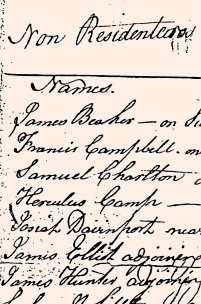 Non Residenters
Names.
James Beaker — on
Francis Campbell. on
Samuel Charlton
Hercules Camp —
Josiah Davenport near
James Elliot adjoining
James Hunter adjoining